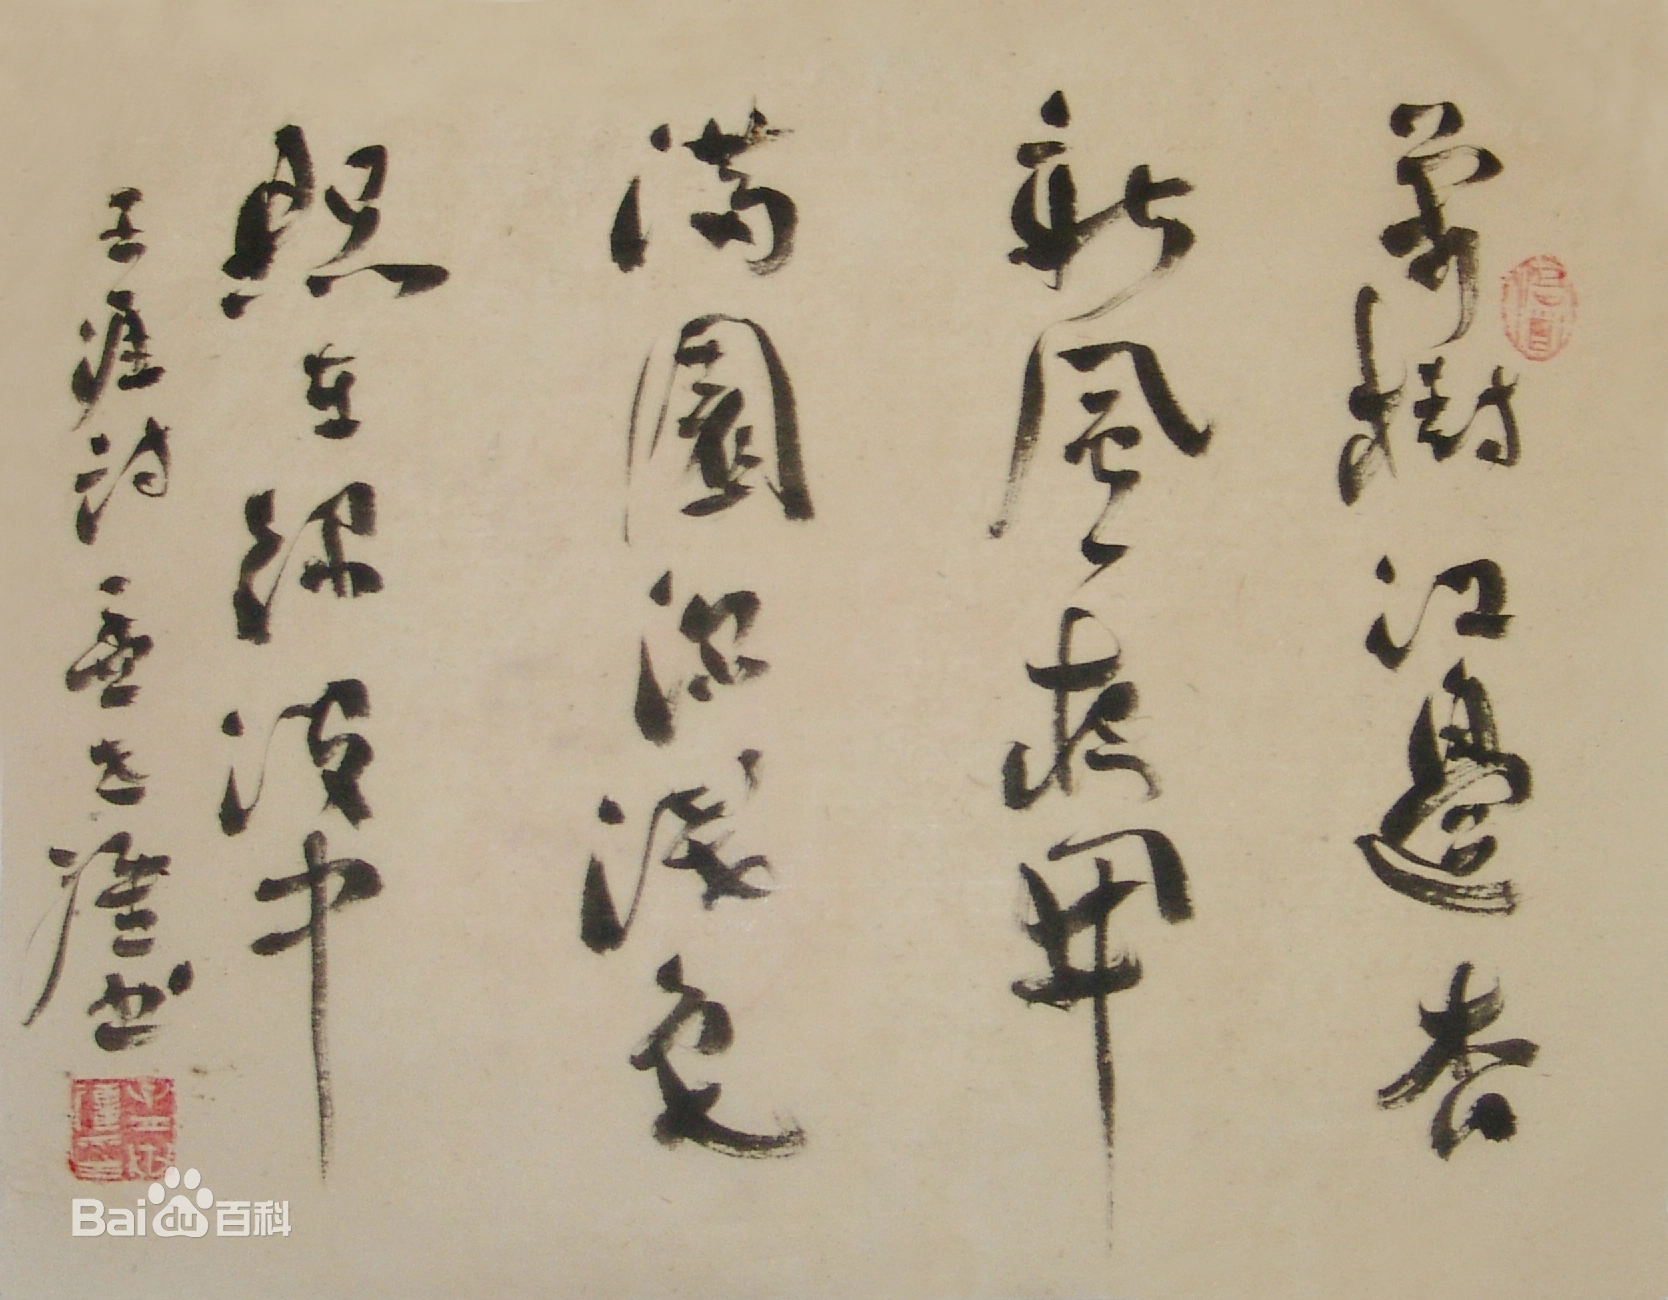 萬樹江邊杏
新風一夜開
滿園深淺色
照在綠波中
王涯詩 書
Bai du 百科